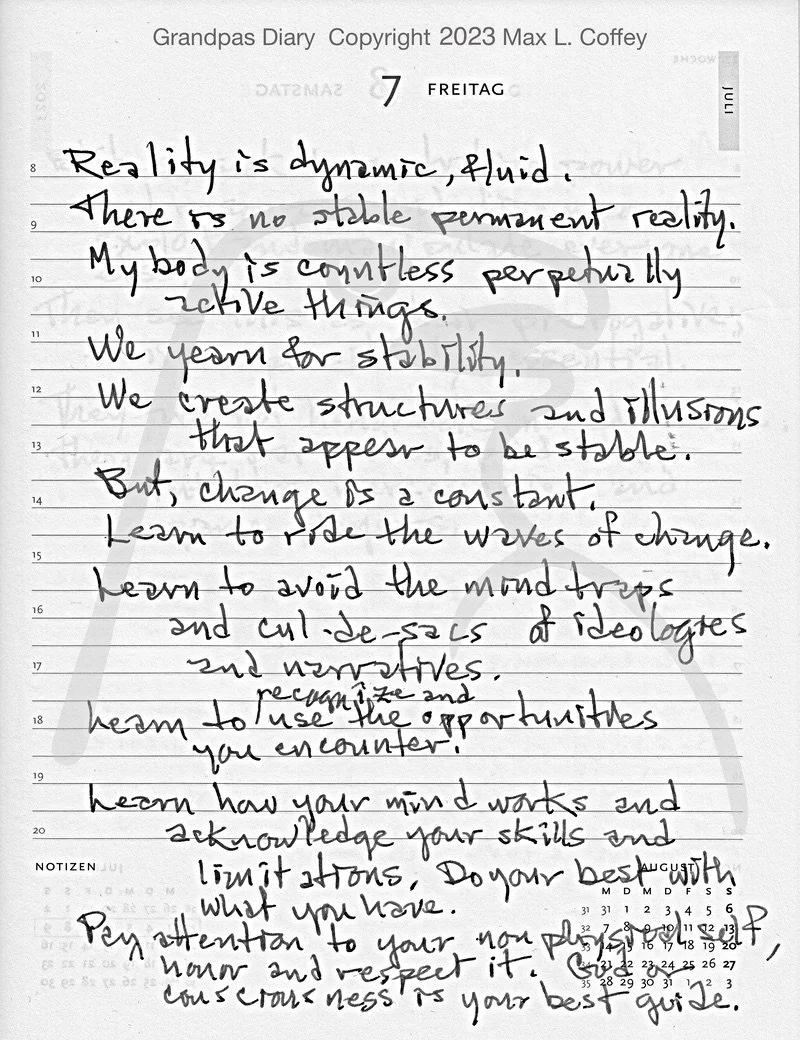 Grandpas Diary Copyright 2023 Max L. Coffey
7 FREITAG
JULI
8 Reality is dynamic, fluid.
There is no stable permanent reality.
9
My body is countless perpetually
10
active things.
11
We yearn for stability.
12 We create structures and illusions
that appear to be stable.
13
But, change is a constant.
14
Learn to ride the waves of change.
15
Learn to avoid the mind traps
16
and cul-de-sacs of ideologies
17 and narratives.
recognize and
18 Learn to use the opportunities
you encounter.
19
Learn how your mind works and
20 acknowledge your skills and
NOTIZEN
limitations. Do your best with
AUGUST
M D M D F S S
what you have.
31 31 1 2 3 4 5 6
Pay attention to your non physical self,
32 7 8 9 10 11 12 13
33 14 15 16 17 18 19 20
honor and respect it. God or
34 21 22 23 24 25 26 27
consciousness is your best guide.
35 28 29 30 31 1 2 3